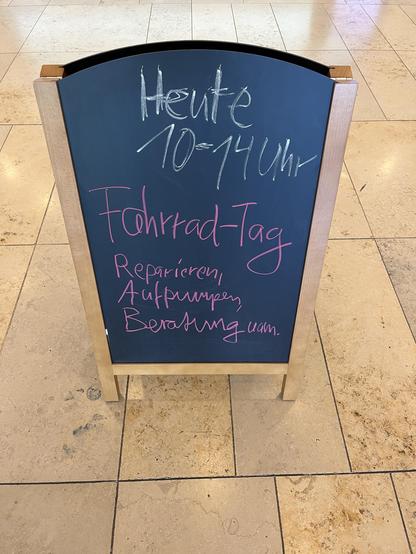 Heute
10-14 Uhr
Fahrrad-Tag
Reparieren,
Aufpumpen,
Beratung uam.